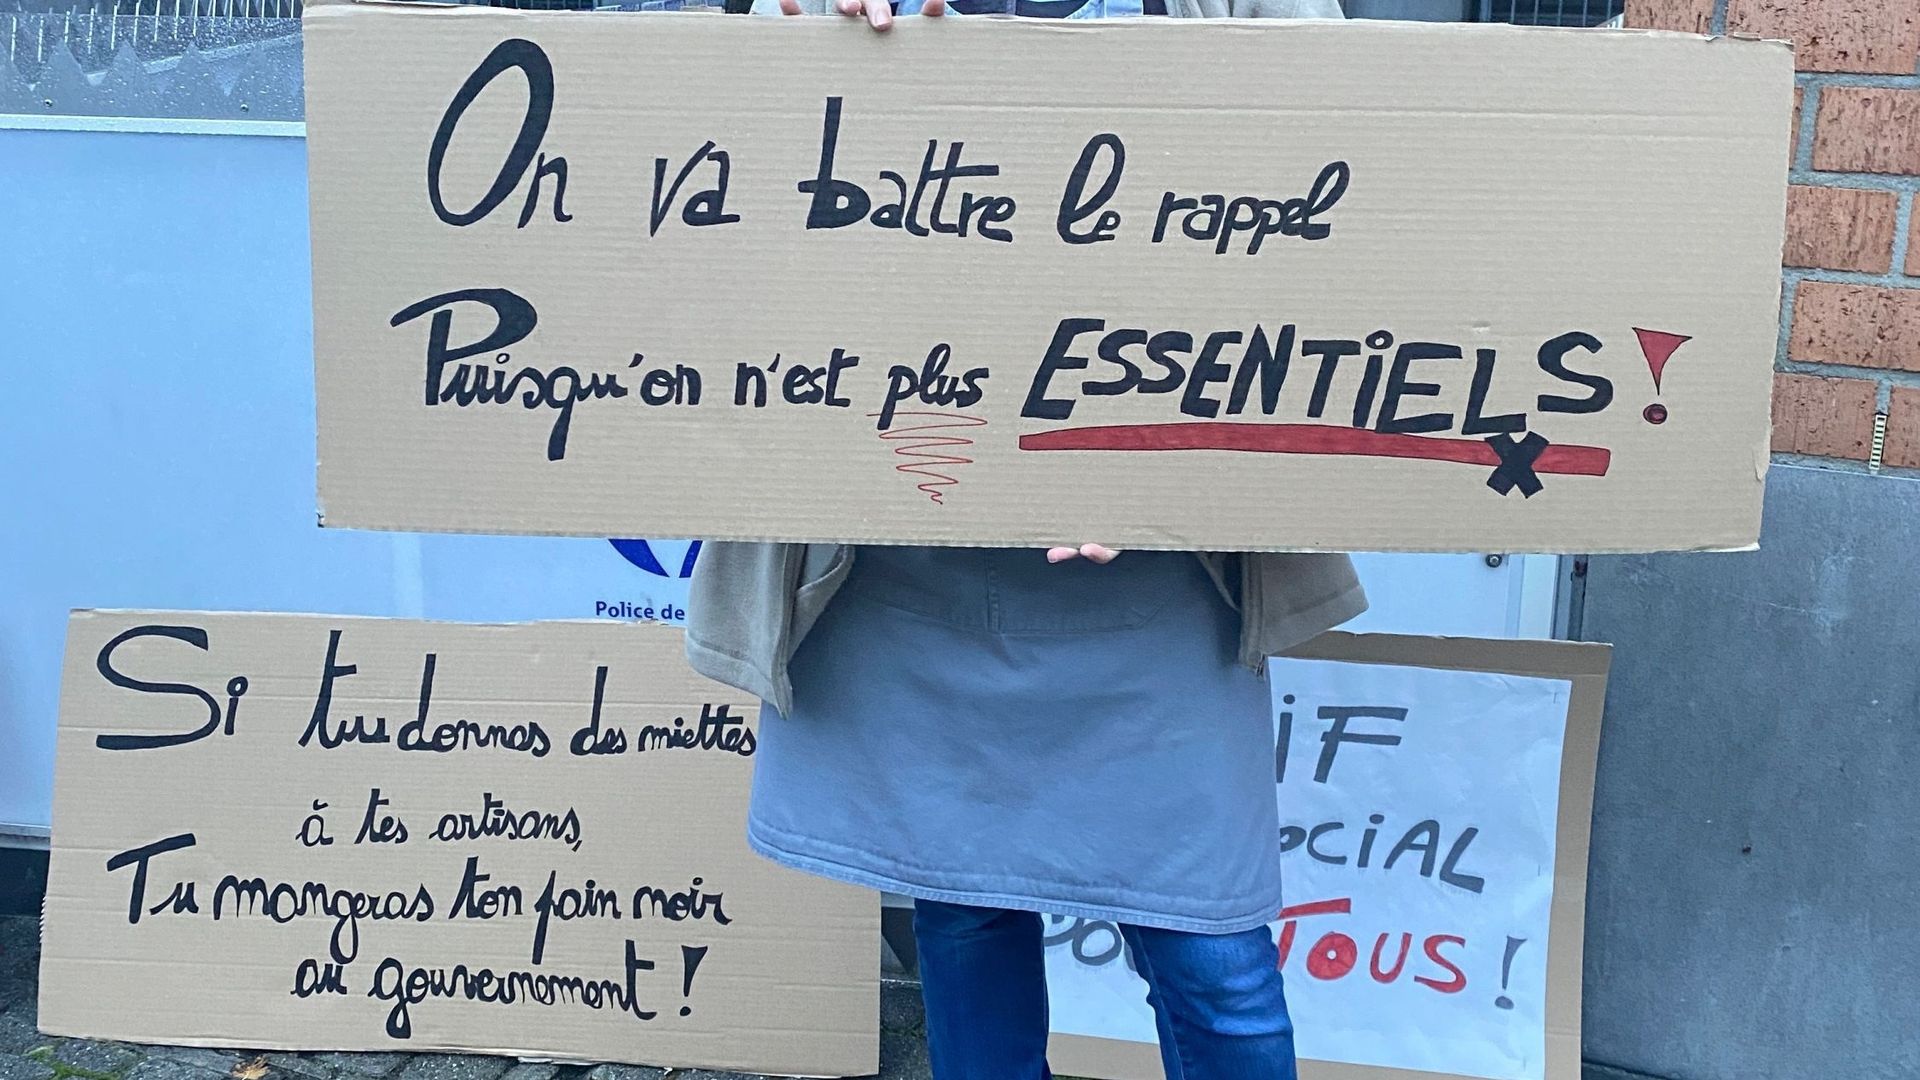 On va battre le rappel
Puisqu'on n'est plus ESSENTiELS !
Police de
Si tu donnes des miettes
à tes artisans,
Tu mangeras ton pain noir
au gouvernement !
iF
OCiAL
TOUS !